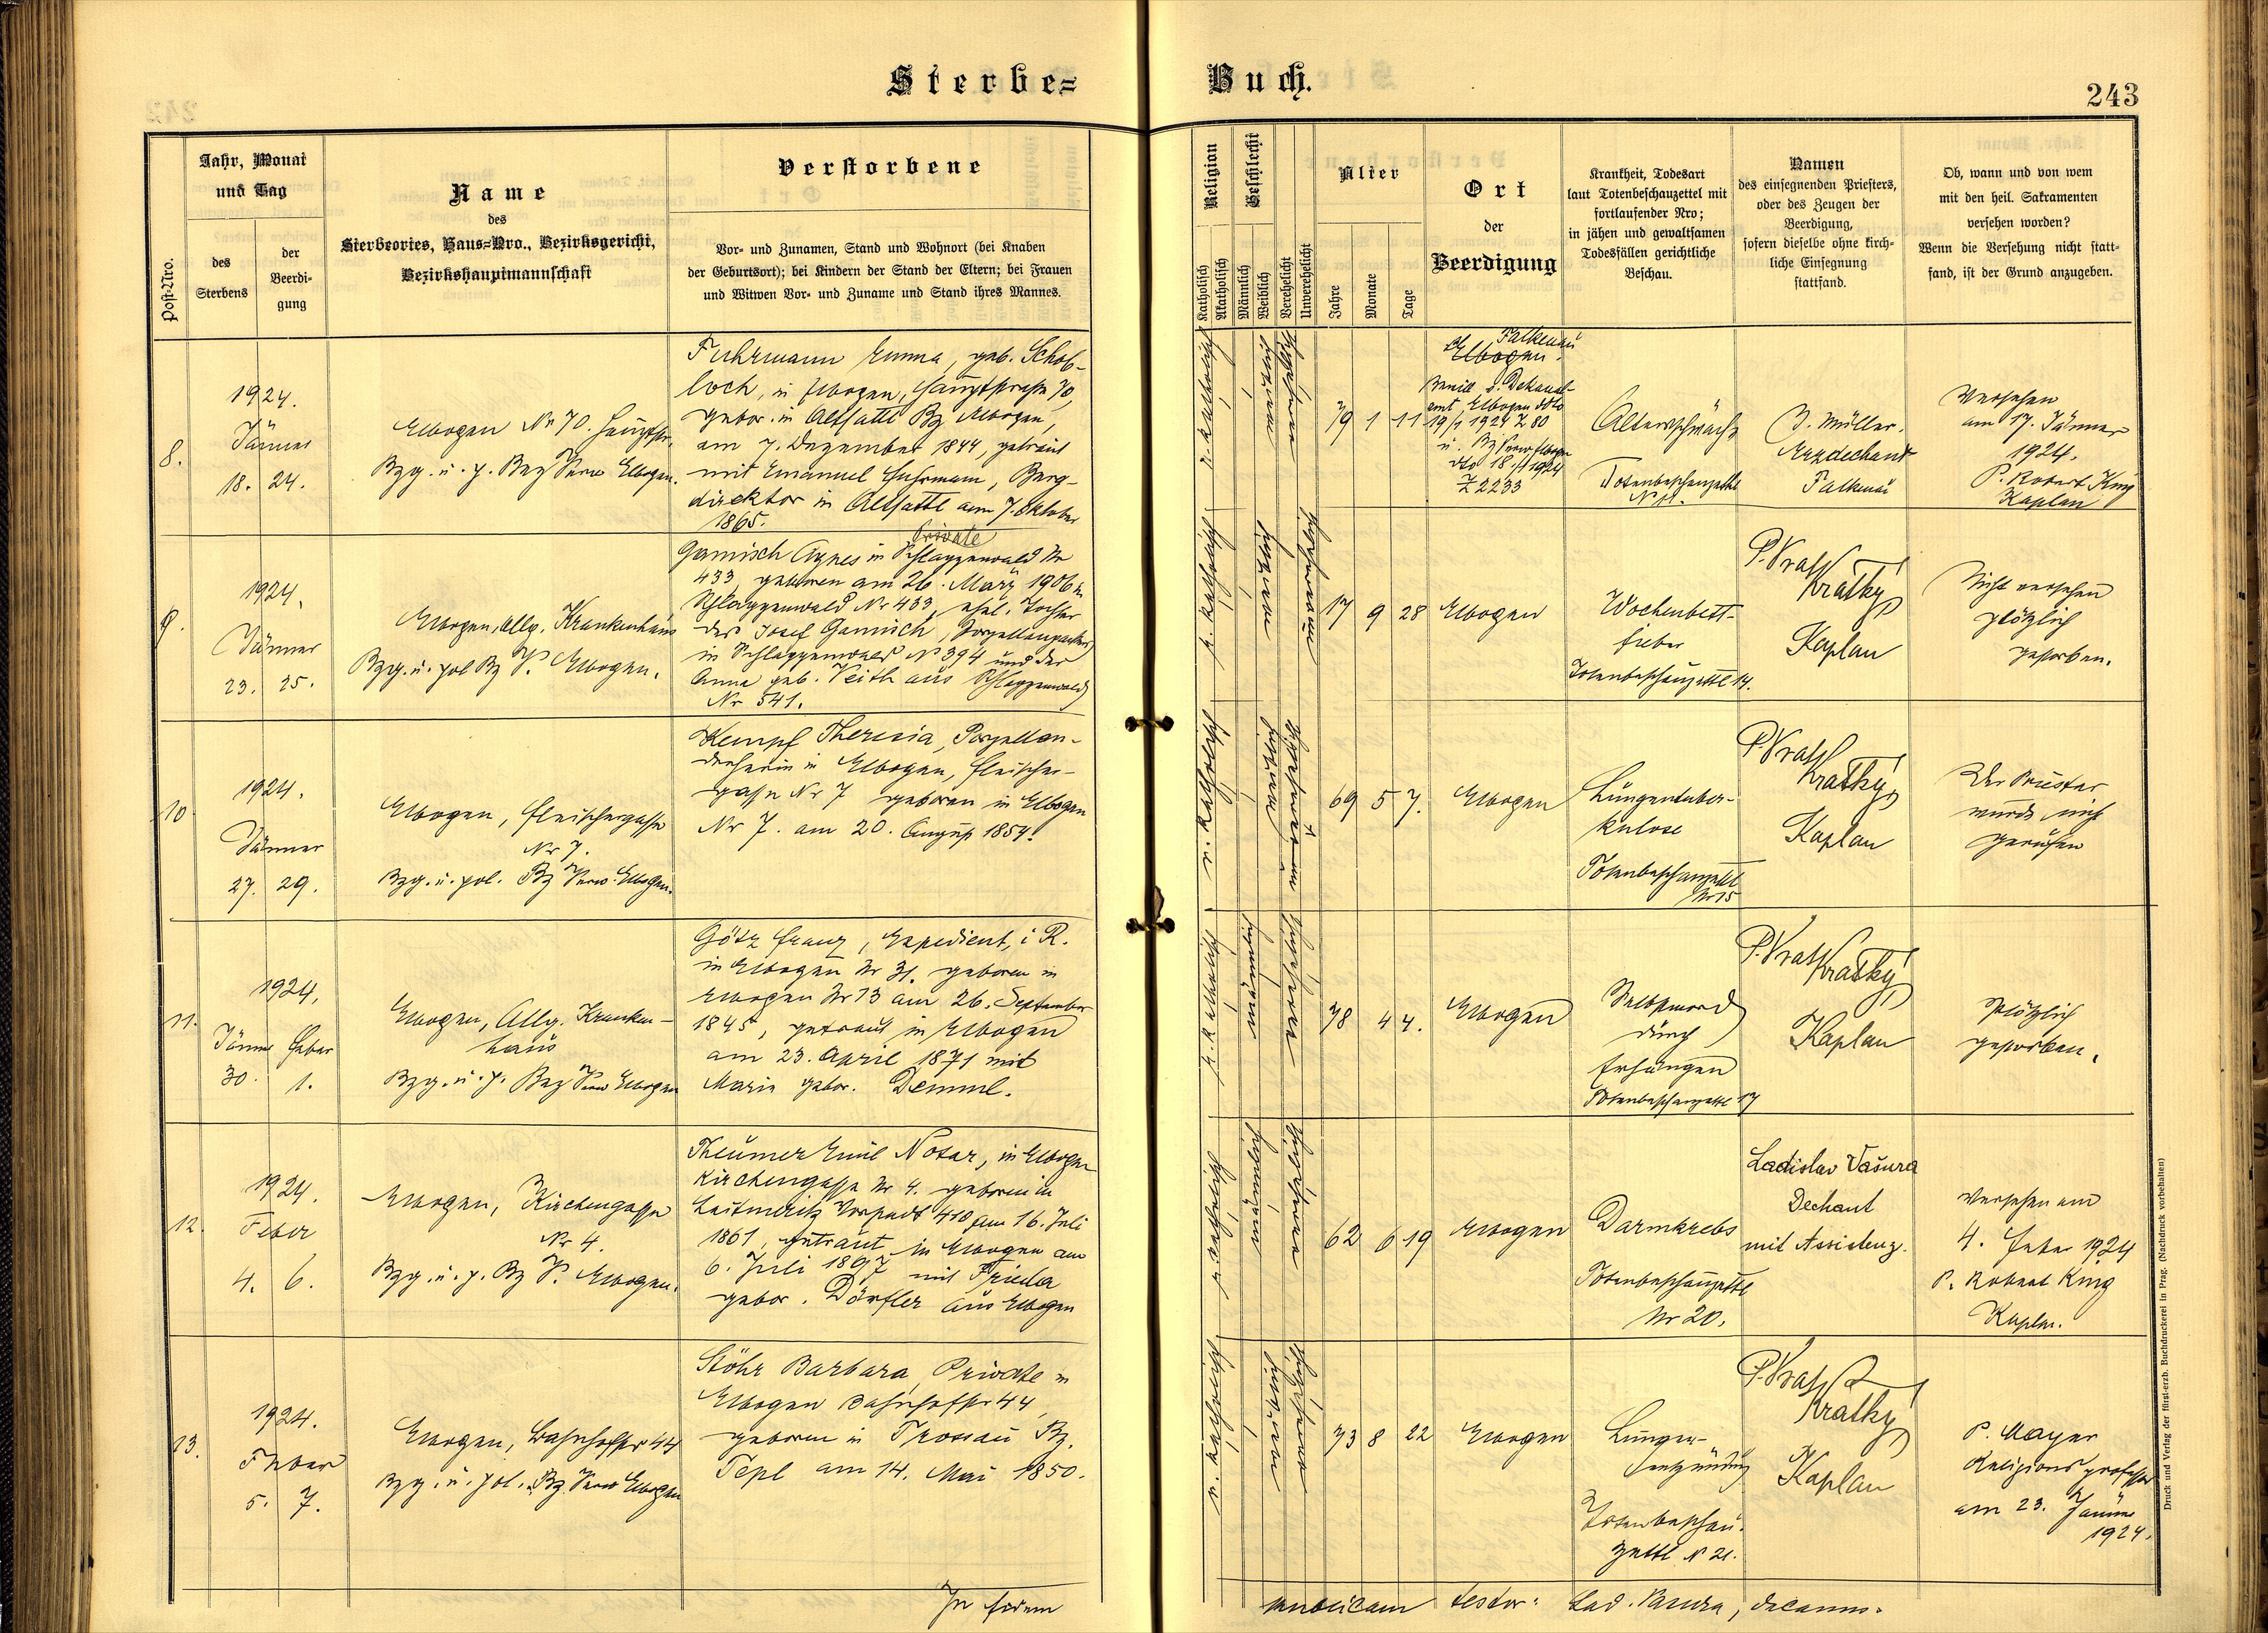 Sterbe=
Buch.
243
Post-Nro.
Jahr, Monat
und Tag
des
Sterbens
der
Beerdi-
gung
Name
des
Sterbeortes, Haus=Nro., Bezirksgericht,
Bezirkshauptmannschaft
Verstorbene
Vor- und Zunamen, Stand und Wohnort (bei Knaben
der Geburtsort); bei Kindern der Stand der Eltern; bei Frauen
und Witwen Vor- und Zuname und Stand ihres Mannes.
Religion
Katholisch
Akatholisch
Geschlecht
Männlich
Weiblich
Verehelicht
Unverehelicht
Alter
Jahre
Monate
Tage
Ort
der
Beerdigung
Krankheit, Todesart
laut Totenbeschauzettel mit
fortlaufender Nro;
in jähen und gewaltsamen
Todesfällen gerichtliche
Beschau.
Namen
des einsegnenden Priesters,
oder des Zeugen der
Beerdigung,
sofern dieselbe ohne kirch-
liche Einsegnung
stattfand.
Ob, wann und von wem
mit den heil. Sakramenten
versehen worden?
Wenn die Versehung nicht statt-
fand, ist der Grund anzugeben.
8.
1924.
Jänner
18. 24.
Elbogen Nr 70. Hauptstr.
Bzg. u. p. Bez Verw Elbogen.
Fuhrmann Emma, geb. Schob-
loch, in Elbogen, Hauptstrasse 70,
gebor. in Altsattl Bz Elbogen,
am 7. Dezember 1844, getraut
mit Emanuel Fuhrmann, Berg-
direktor in Altsattl am 7. Oktober
1865.
r. katholisch
79 1 11
Falkenau
Elbogen.
Dekanal-
amt Elbogen dto
19/1 1924 Z 80
u. Bz Verw Elbogen
dto 18./1 1924
Z 2233
Altersschwäche
Totenbeschauzettl
J. Müller.
Erzdechant
Falkenau
Versehen
am 17. Jänner
1924.
P. Robert King
Kaplan
9.
1924.
Jänner
23. 25.
Elbogen, allg. Krankenhaus
Bzg. u. pol Bz V. Elbogen.
Private
Gamisch Agnes in Schlaggenwald Nr
433, geboren am 26. März 1906 in
Schlaggenwald Nr 433, ehel. Tochter
des Josef Gamisch, Porzellanpackers
in Schlaggenwald N 394 und der
Anna geb. Veith aus Schlaggenwald
Nr 541.
r. katholisch
17 9 28
Elbogen
Wochenbett-
fieber
Totenbeschauzettl 14.
P. Vrat.
Kratký
Kaplan
Nicht versehen
plötzlich
gestorben.
10
1924.
Jänner
27. 29.
Elbogen, Fleischergasse
Nr 7.
Bzg. u. pol. Bz Verw. Elbogen.
Kempf Theresia, Porzellan-
dreherin in Elbogen, Fleischer-
gasse Nr 7 geboren in Elbogen
Nr 7. am 20. August 1854.
r. katholisch
69 5 7.
Elbogen
Lungentuber-
kulose
Totenbeschauzettl
Nr 15
P. Vrat.
Kratký
Kaplan
Der Priester
wurde nicht
gerufen
11.
1924.
Jänner Feber
30. 1.
Elbogen, Allg. Kranken-
haus
Bzg. u. p. Bez Verw Elbogen
Götz Franz, Expedient, i R.
in Elbogen Nr 31. geboren in
Elbogen Nr 73 am 26. September
1845, getraut in Elbogen
am 23. April 1871 mit
Maria gebor. Demml.
r. katholisch
78 4 4.
Elbogen
Selbstmord
durch
Erhängen
Totenbeschauzettl 17
P. Vrat.
Kratký
Kaplan
Plötzlich
gestorben.
12.
1924.
Feber
4. 6.
Elbogen, Kirchengasse
Nr 4.
Bzg. u. p. Bz V. Elbogen.
Theumer Emil Notar, in Elbogen
Kirchengasse Nr 4. geboren in
Leitmeritz Vorstadt 410 am 16. Juli
1861, getraut in Elbogen am
6. Juli 1897 mit Frieda
gebor. Dörfler aus Elbogen
r. katholisch
62 6 19
Elbogen
Darmkrebs
Totenbeschauzettl
Nr 20.
Ladislav Vašura
Dechant
mit Assistenz.
Versehen am
4. Feber 1924
P. Robert King
Kaplan.
13.
1924.
Feber
5. 7.
Elbogen, Bahnhofstr 44
Bzg. u. pol. Bz Verw Elbogen
Stöhr Barbara, Private in
Elbogen Bahnhofstr 44,
geboren in Trossau Bz.
Tepl am 14. Mai 1850.
r. katholisch
73 8 22
Elbogen
Lungen-
entzündung
Totenbeschau-
zettl N 21.
P. Vrat.
Kratký
Kaplan
P. Mayer
Religionsprofessor
am 23. Jänner
1924.
In fidem
publicam testor: Lad. Vašura, decanus.
Druck und Verlag der fürst-erzb. Buchdruckerei in Prag. (Nachdruck vorbehalten)